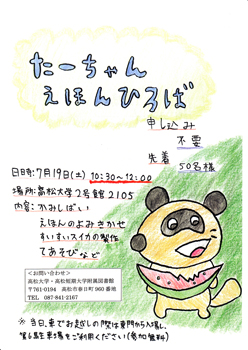 たーちゃん
えほんひろば
申し込み
不要
先着
50名様
日時:7月19日(土) 10:30~12:00
場所:高松大学2号館2105
内容:かみしばい
えほんのよみきかせ
すいすいスイカの製作
てあそびなど
<お問い合わせ>
高松大学・高松短期大学附属図書館
〒761-0194 高松市春日町960番地
TEL 087-841-2167
※当日、車でお越しの際は東門から入場し、
第6駐車場をご利用ください(参加無料)